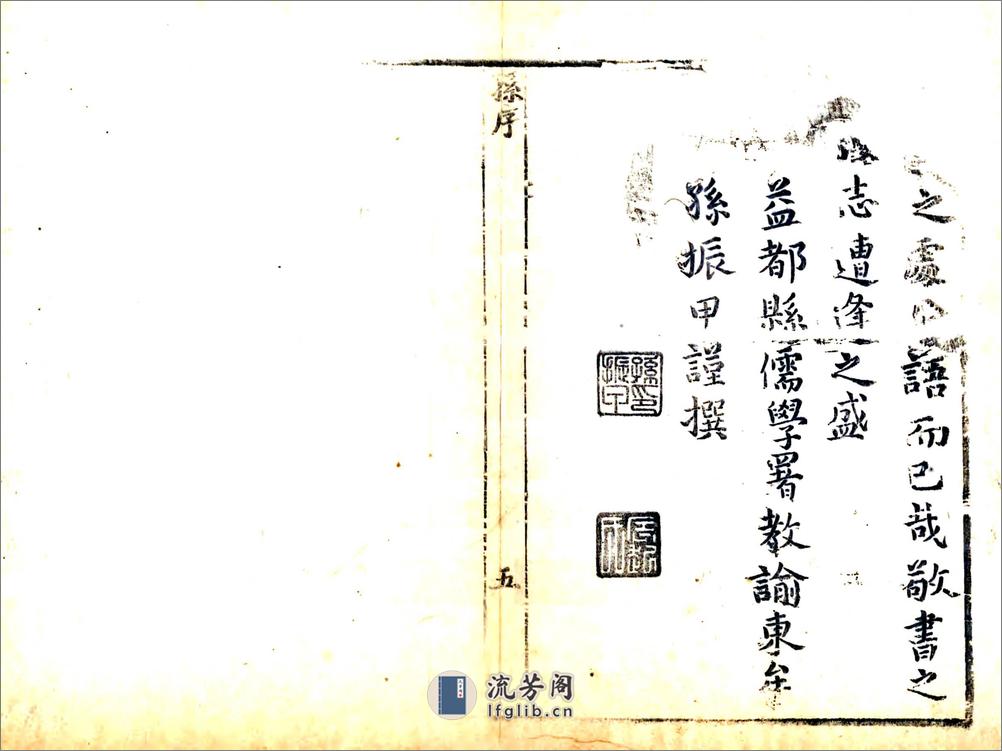 之虛語而已哉敬書之
志遭逢之盛
益都縣儒學署教諭東牟
孫振甲謹撰
孫印振甲
孫序
五
流芳阁
lfglib.cn